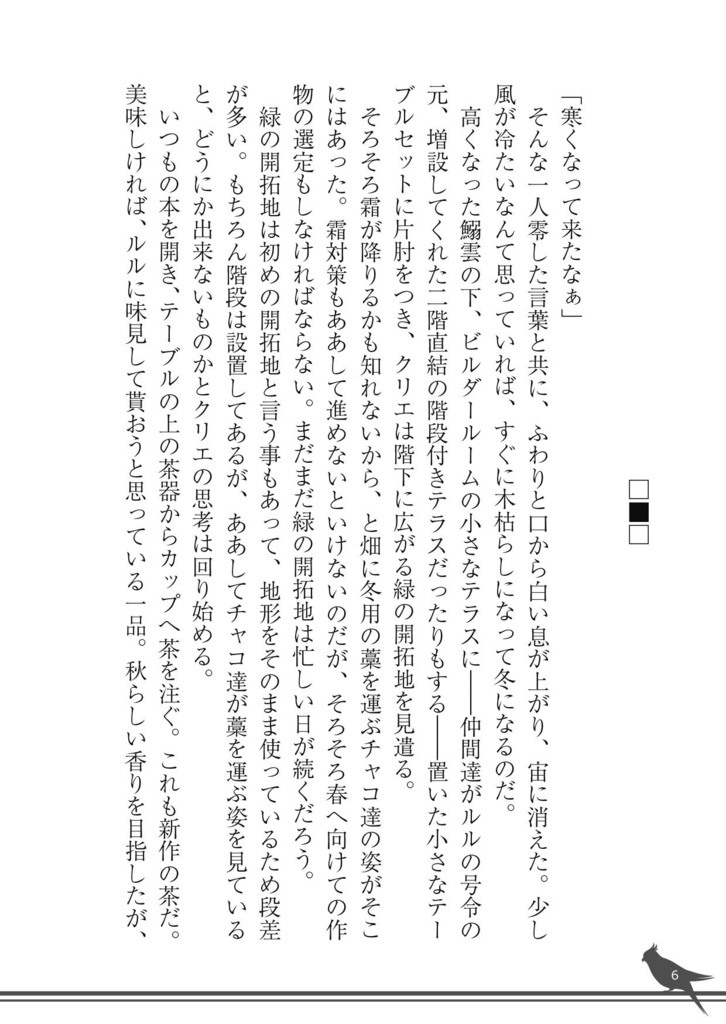 □■□
「寒くなって来たなぁ」
そんな一人零した言葉と共に、ふわりと口から白い息が上がり、宙に消えた。少し
風が冷たいなんて思っていれば、すぐに木枯らしになって冬になるのだ。
高くなった鰯雲の下、ビルダールームの小さなテラスに――仲間達がルルの号令の
元、増設してくれた二階直結の階段付きテラスだったりもする――置いた小さなテー
ブルセットに片肘をつき、クリエは階下に広がる緑の開拓地を見遣る。
そろそろ霜が降りるかも知れないから、と畑に冬用の藁を運ぶチャコ達の姿がそこ
にはあった。霜対策もああして進めないといけないのだが、そろそろ春へ向けての作
物の選定もしなければならない。まだまだ緑の開拓地は忙しい日が続くだろう。
緑の開拓地は初めの開拓地と言う事もあって、地形をそのまま使っているため段差
が多い。もちろん階段は設置してあるが、ああしてチャコ達が藁を運ぶ姿を見ている
と、どうにか出来ないものかとクリエの思考は回り始める。
いつもの本を開き、テーブルの上の茶器からカップへ茶を注ぐ。これも新作の茶だ。
美味しければ、ルルに味見して貰おうと思っている一品。秋らしい香りを目指したが、
6